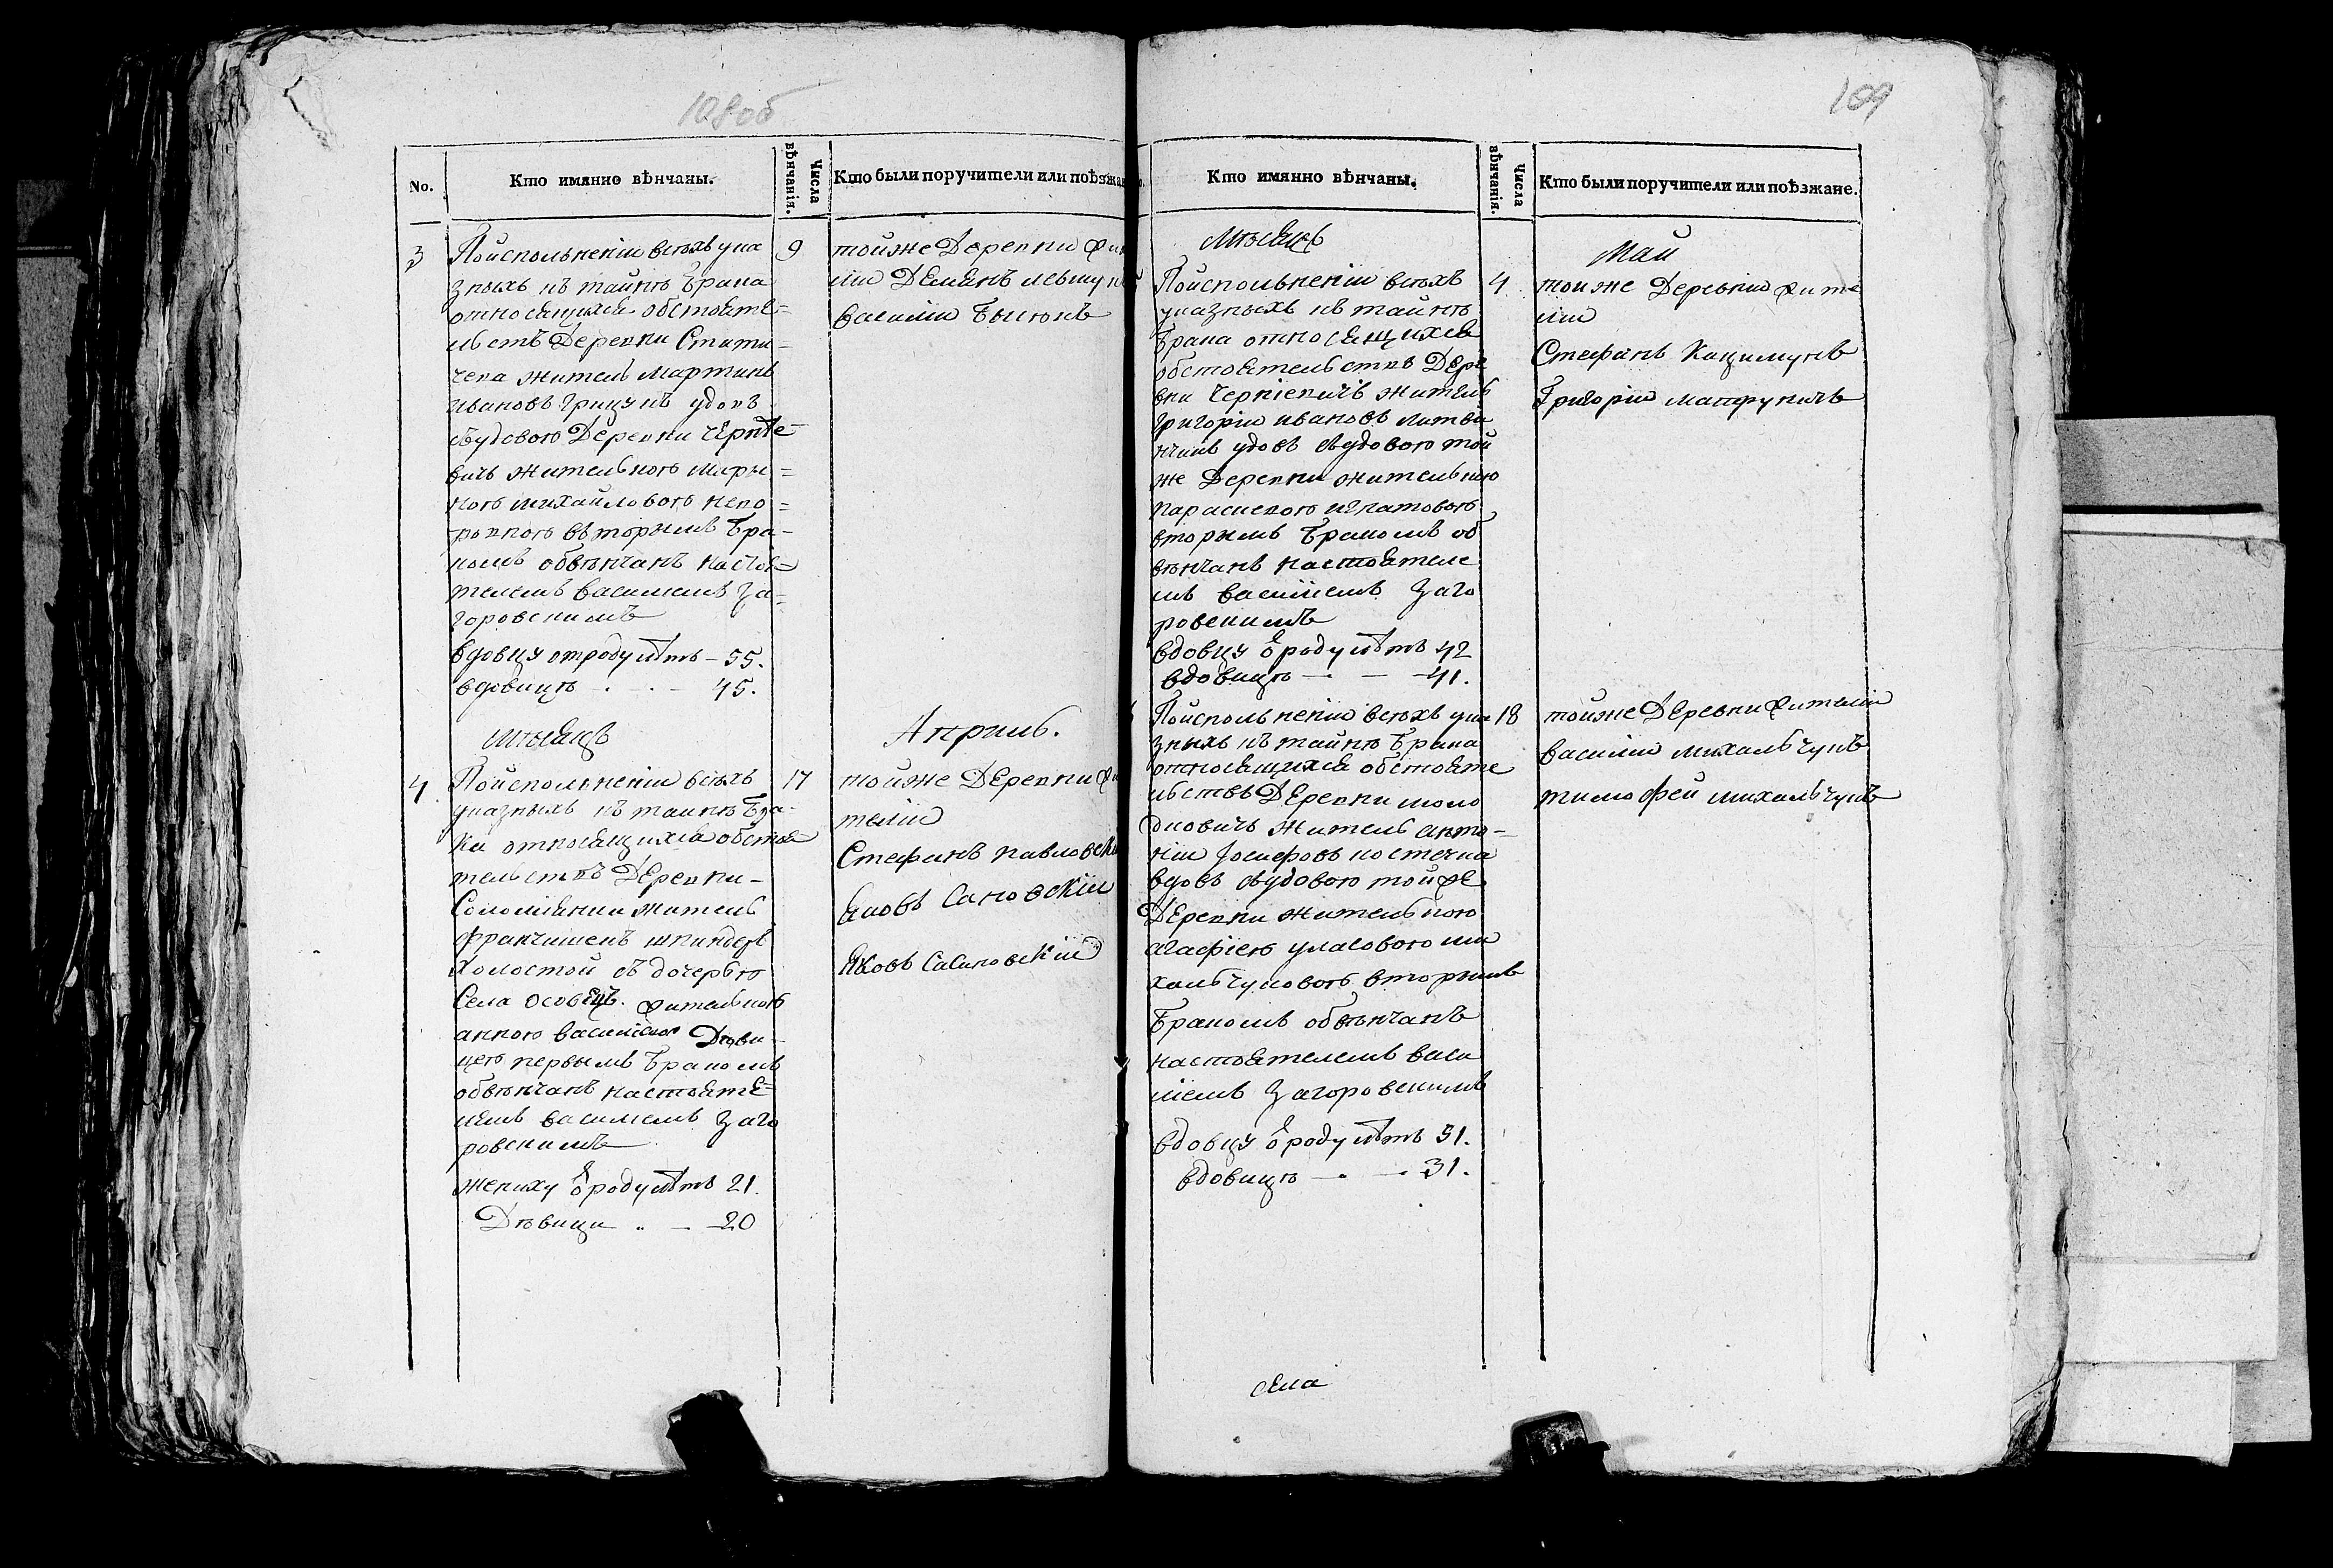 108об
No.
Кто имянно вѣнчаны.
Числа вѣнчанія.
Кто были поручители или поѣзжа
3
Поисполненіи всѣхъ ука
9
зныхъ къ тайнѣ Брака
относящихся обстояте=
льствъ Деревни Стати-
чева житель Мартинъ
Ивановъ Грицукъ удовъ
съудовою Деревни Черніе-
вичъ жительною Мары=
ною Михайловою
вѣторымъ Бра-
комъ обвѣнчанъ настоя=
телемъ Василіемъ За=
горовскимъ
вдовцу отроду лѣтъ – 55.
вдовицѣ – . – 45.
тойже Деревни жи
ли Демянъ Левчук
Василіи
Мѣсяцъ
Априль.
4
Поисполненіи всѣхъ
17
указныхъ къ таинѣ Бра-
ка относящихся обстоя=
тельствъ Деревни-
Соломянки житель
Францишекъ Шпиндеръ
Холостой съ дочерью
Села Особецъ. жительною
Анною Василіевою Дѣви-
цею первымъ Бракомъ
обвѣнчанъ настояте=
лемъ Василіемъ Заго
ровскимъ
жениху ѿроду лѣтъ 21.
Дѣвици .. – 20
тойже Деревни жи
теліи
Стефанъ Павловски
Яковъ Сановскіи
Яковъ Сасиновскіи
109
Кто имянно вѣнчаны.
Числа вѣнчанія.
Кто были поручители или поѣзжане.
Мѣсяцъ
Май
Поисполненіи всѣхъ
4
указныхъ къ таинѣ
Брака относящихся
обстоятельствъ Дере
вни Черніевичъ житель
Григоріи Ивановъ Литви
нчикъ удовъ съудовою той
же Деревни жительною
Параскевою Игнатовою
вторымъ Бракомъ об
вѣнчанъ настоятеле
мъ Василіемъ Заго
ровскимъ
вдовцу ѿроду лѣтъ 42
вдовицѣ – . – 41.
тойже Деревни жите
ліи
Стефанъ Кацимукъ
Григоріи
Поисполненіи всѣхъ ука
18
зныхъ къ тайнѣ Брака
относящихся обстояте
льствъ Деревни Моло
дковичъ житель Анто-
ніи Іосифовъ Костечка
вдовъ съудовою тойже
Деревни жительною
Агафіею Уласовою Ми
хальчуковою вторымъ
Бракомъ обвѣнчанъ
настоятелемъ Васи
ліемъ Загоровскимъ
вдовцу ѿроду лѣтъ 51.
вдовицѣ – . – 31.
тойже Деревни жителіи
Василіи Михальчукъ
Тимофеи Михальчукъ
села